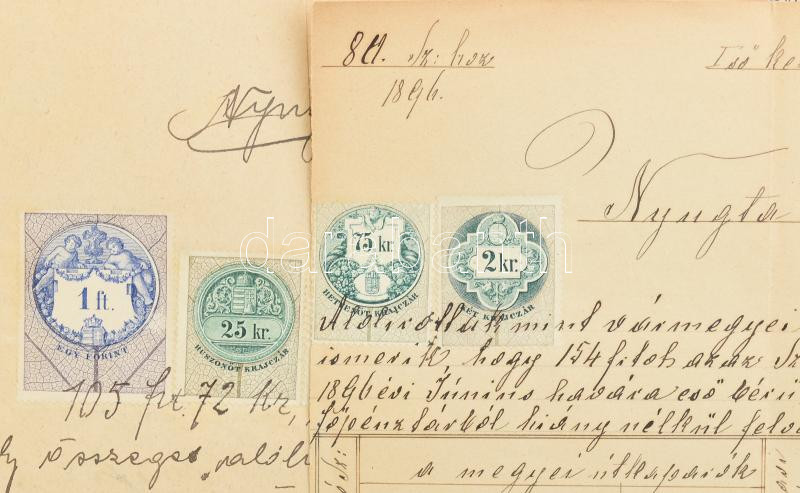 Nyu
1 ft.
EGY FORINT
25 kr.
HUSZONÖT KRAJCZÁR
105 frt. 72 kr,
összeget
80. Sz: hoz
1896.
Nyugta
75 kr.
HETVENÖT KRAJCZÁR
2 kr.
KÉT KRAJCZÁR
Alulírottak mint vármegyei
ismerik, hogy 154 frtot azaz Sz
1896 évi Június havára eső bérü
főpénztárból hiány nélkül felv
a megyei útkaparók
darabanth